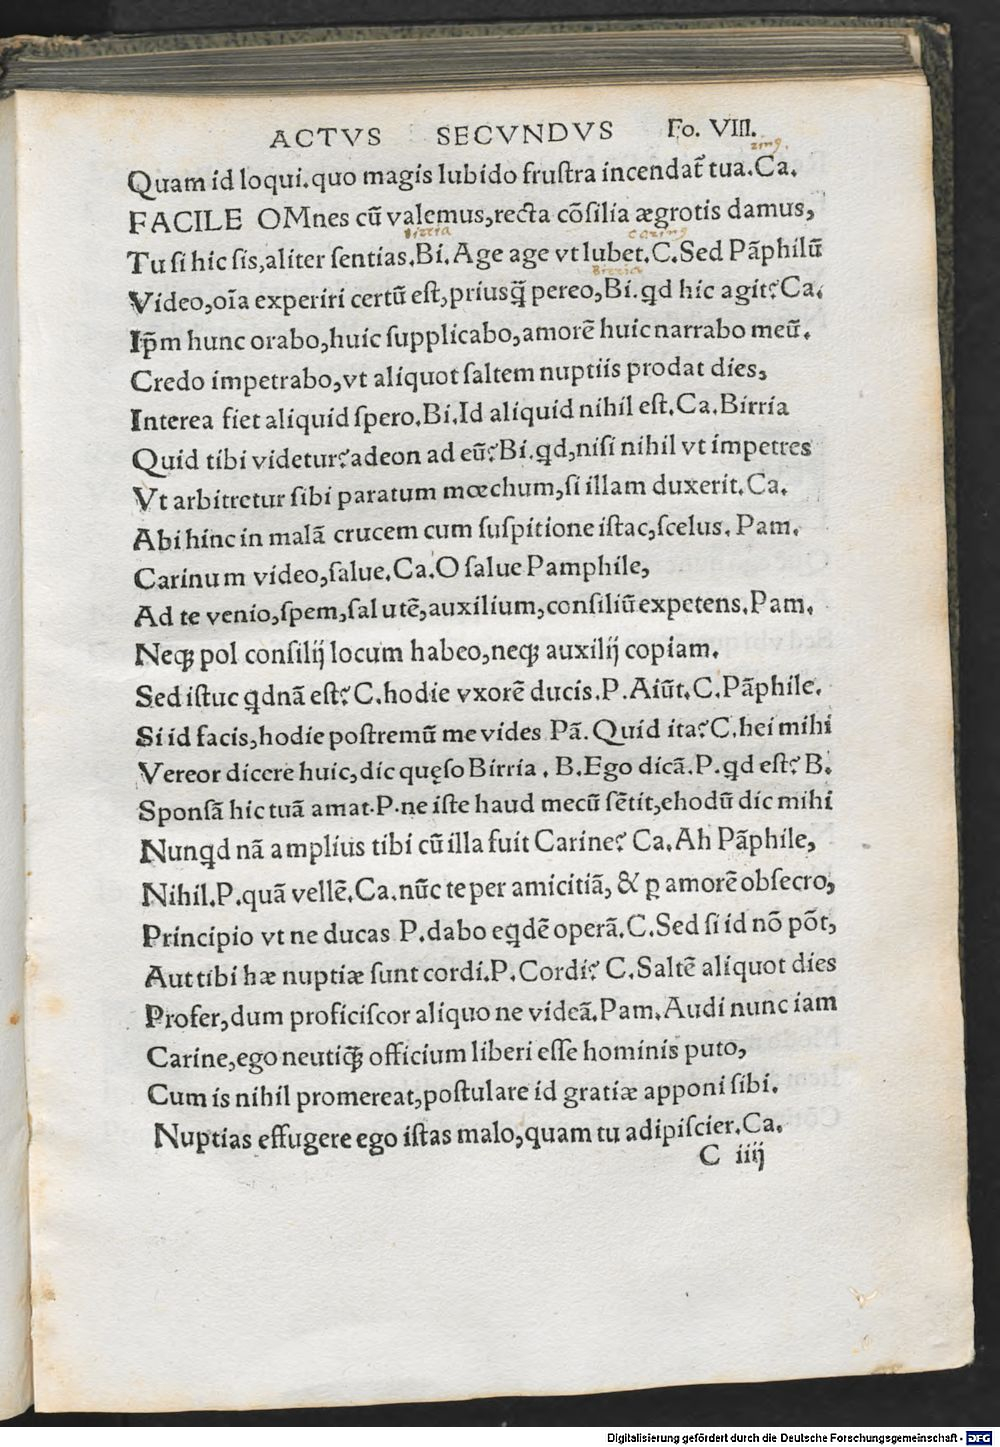 ACTVS SECVNDVS Fo. VIII.
zing.
Quam id loqui.quo magis lubido fruſtra incendat̃ tua.Ca.
FACILE OMnes cũ valemus,recta cõſilia ægrotis damus,
Birria carinꝯ
Tu ſi hic ſis,aliter ſentias.Bi.Age age vt lubet.C.Sed Pãphilũ
Birria
Video,oĩa experiri certũ eſt,priusq̃ pereo,Bi.qd hic agit?Ca.
Ip̃m hunc orabo,huic ſupplicabo,amorẽ huic narrabo meũ.
Credo impetrabo,vt aliquot ſaltem nuptiis prodat dies,
Interea fiet aliquid ſpero.Bi.Id aliquid nihil eſt.Ca.Birria
Quid tibi videtur?adeon ad eũ?Bi.qd,niſi nihil vt impetres
Vt arbitretur ſibi paratum mœchum,ſi illam duxerit.Ca.
Abi hinc in malã crucem cum ſuſpitione iſtac,ſcelus. Pam.
Carinum video,ſalue.Ca.O ſalue Pamphile,
Ad te venio,ſpem,ſalutẽ,auxilium,conſiliũ expetens.Pam.
Neqꝫ pol conſilij locum habeo,neqꝫ auxilij copiam.
Sed iſtuc qdnã eſt? C.hodie vxorẽ ducis.P.Aiũt.C.Pãphile.
Si id facis,hodie poſtremũ me vides Pã.Quid ita?C.hei mihi
Vereor dicere huic,dic quęſo Birria . B.Ego dicã.P.qd eſt? B.
Sponſã hic tuã amat.P.ne iſte haud mecũ ſẽtit,ehodũ dic mihi
Nunqd nã amplius tibi cũ illa fuit Carine? Ca.Ah Pãphile,
Nihil.P.quã vellẽ.Ca.nũc te per amicitiã, & ꝑ amorẽ obſecro,
Principio vt ne ducas P.dabo eqdẽ operã.C.Sed ſi id nõ põt,
Aut tibi hæ nuptiæ ſunt cordi.P.Cordi? C.Saltẽ aliquot dies
Profer,dum proficiſcor aliquo ne videã.Pam.Audi nunc iam
Carine,ego neutiqꝫ̃ officium liberi eſſe hominis puto,
Cum is nihil promereat,poſtulare id gratiæ apponi ſibi.
Nuptias effugere ego iſtas malo,quam tu adipiſcier.Ca.
C iiij
Digitalisierung gefördert durch die Deutsche Forschungsgemeinschaft - DFG